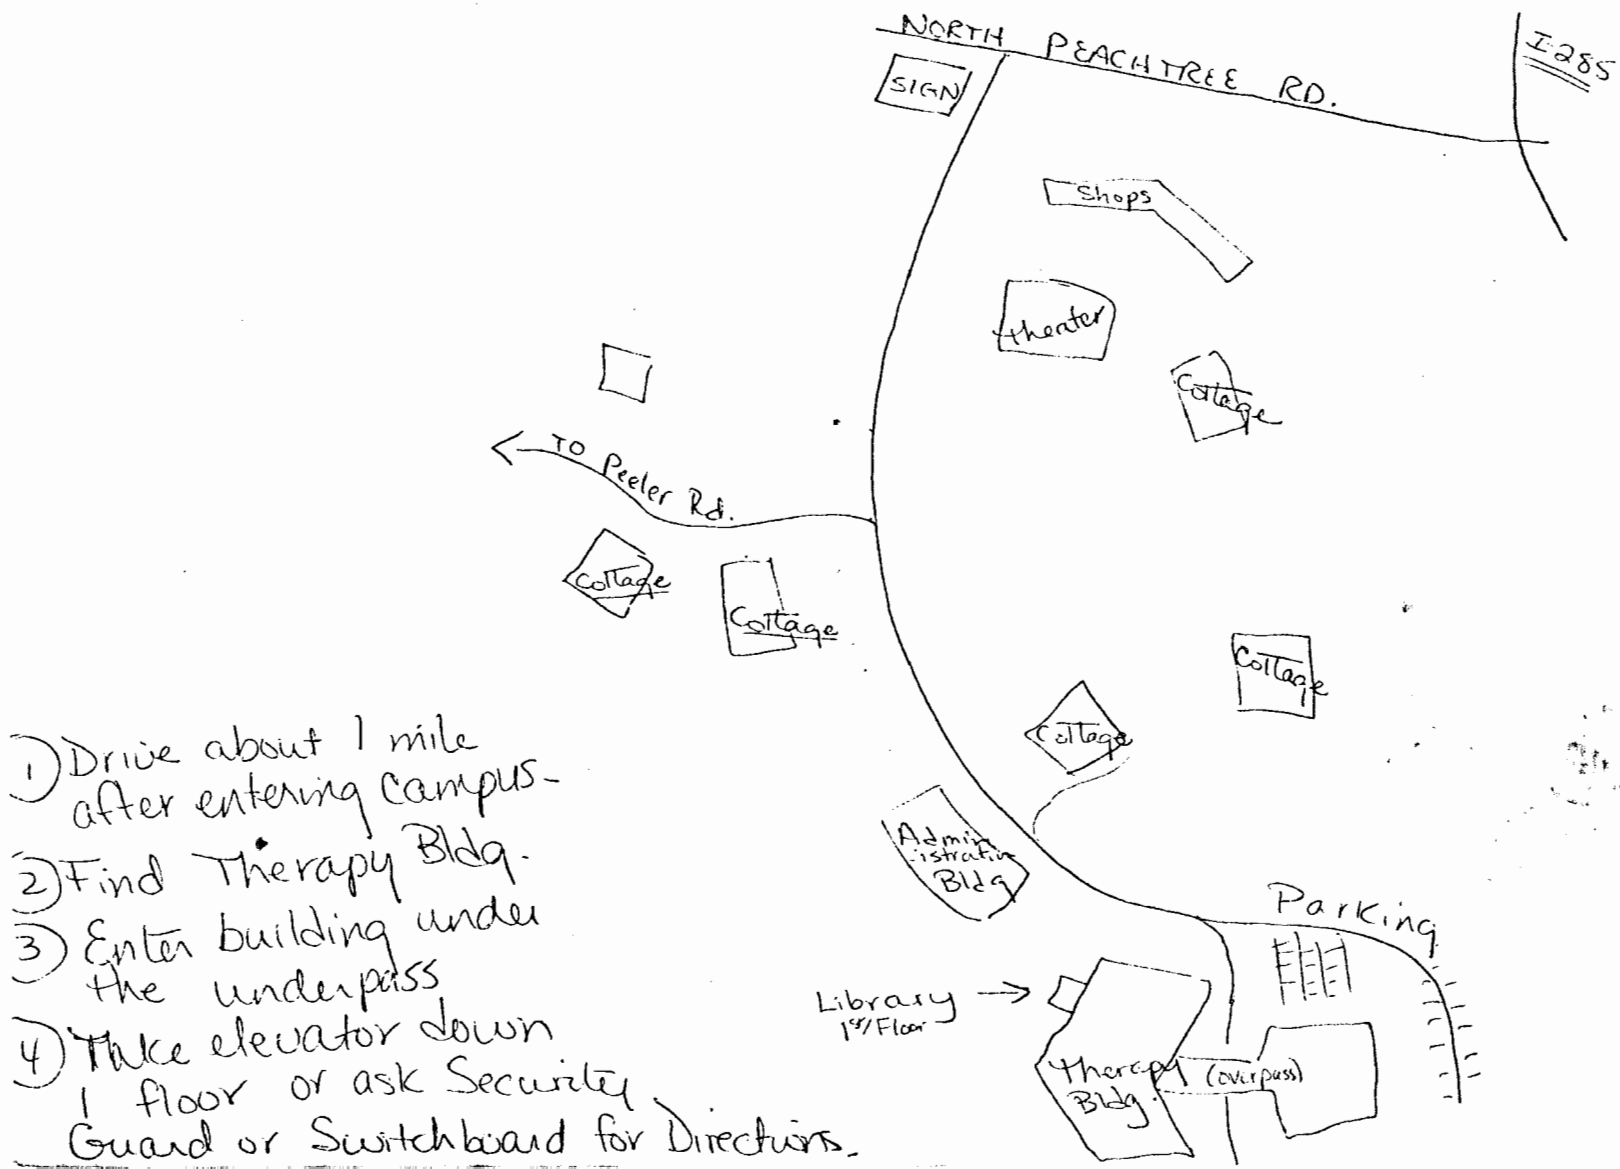 NORTH PEACHTREE RD.
I-285
SIGN
Shops
theater
Cottage
TO Peeler Rd.
Cottage
Cottage
Cottage
Cottage
Admin
-istrative
Bldg
Parking
Library →
1st/Floor
Therapy
Bldg.
(overpass)
① Drive about 1 mile
after entering campus-
② Find Therapy Bldg.
③ Enter building under
the underpass
④ Take elevator down
1 floor or ask Security
Guard or Switchboard for Directions.